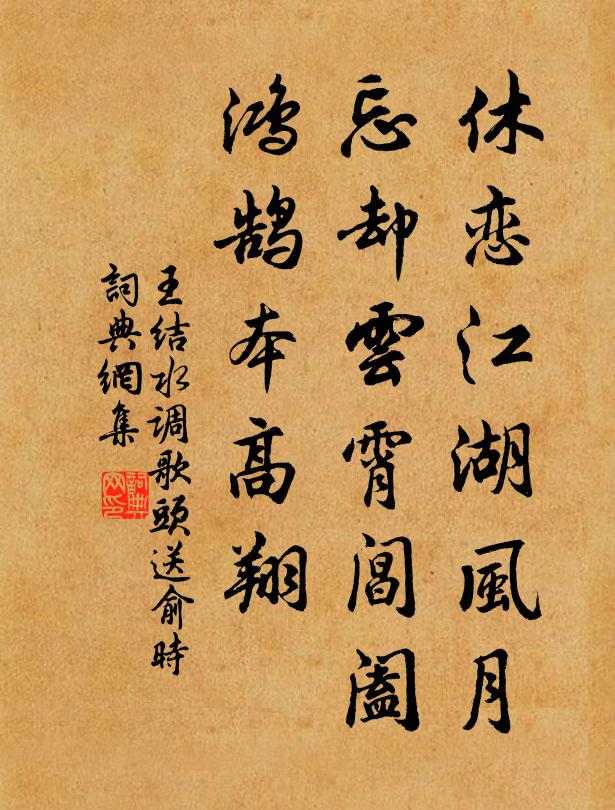 休恋江湖風月
忘却雲霄閶闔
鸿鹄本高翔
王结水调歌頭送俞時
詞典網集
詞典网印